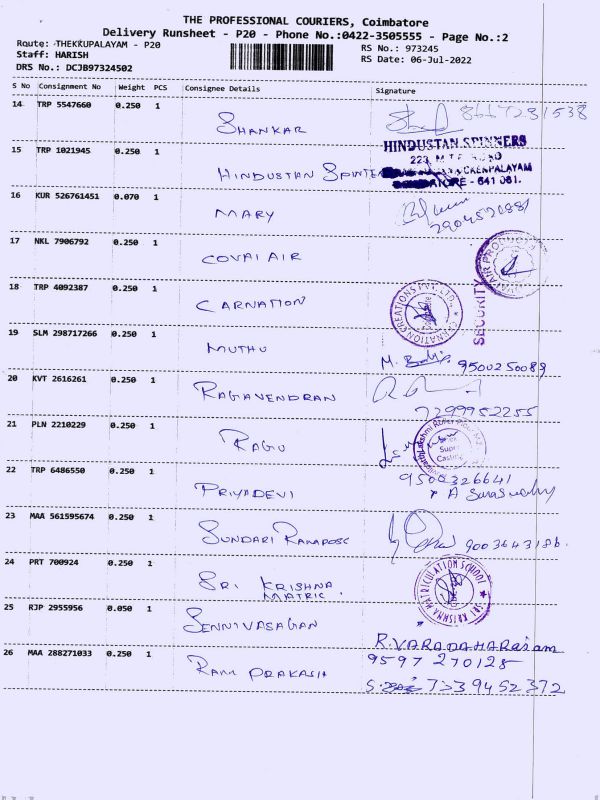 THE PROFESSIONAL COURIERS, Coimbatore
Delivery Runsheet - P20 - Phone No.:0422-3505555 - Page No.:2
Route: THEKKUPALAYAM - P20
RS No.: 973245
Staff: HARISH
RS Date: 06-Jul-2022
DRS No.: DCJB97324502
S No Consignment No Weight PCS Consignee Details Signature
14 TRP 5547660 0.250 1 SHANKAR
15 TRP 1021945 0.250 1 HINDUSTAN SPINTE
HINDUSTAN SPINNERS
- 641 031.
16 KUR 526761451 0.070 1 MARY
17 NKL 7906792 0.250 1 COVAI AIR
SECURITY
18 TRP 4092387 0.250 1 CARNATION
19 SLM 298717266 0.250 1 MUTHU M. 9500250089
20 KVT 2616261 0.250 1 RAGAVENDRAN
7299952255
21 PLN 2210229 0.250 1 RAGU
22 TRP 6486550 0.250 1 PRIYADEVI 9500326641
23 MAA 561595674 0.250 1 SUNDARI RAMADOSC 9003643186.
24 PRT 700924 0.250 1 SRI KRISHNA
MATRIC.
SRI KRISHNA MATRICULATION SCHOOL
25 RJP 2955956 0.050 1 SENNIVASAGAN
R.VARADAHARAJAM
9597 270128
26 MAA 288271033 0.250 1 RAM PRAKASH
7339452372